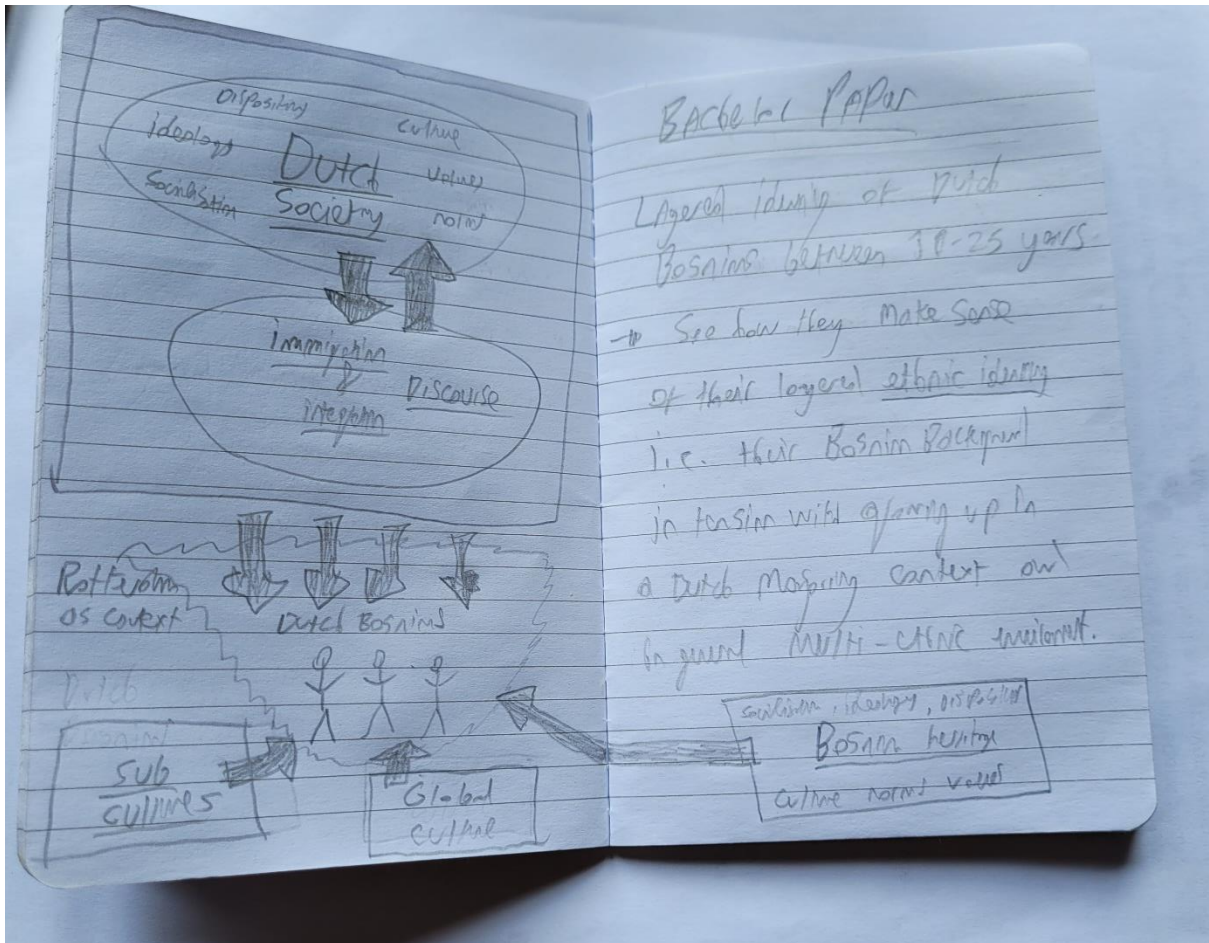 Disposition
ideology
culture
Dutch
Society
values
Socialisation
norms
immigration
&
integration
Discourse
Rotterdam
as context
Dutch Bosnians
Dutch
sub
cultures
Global
culture
Bachelor Paper
Layered identity of Dutch
Bosnians between 18-25 years
→ See how they make sense
of their layered ethnic identity
i.e. their Bosnian Background
in tension with growing up in
a Dutch context and
in general Multi-ethnic environment.
socialisation, ideology, disposition
Bosnian heritage
culture norms values